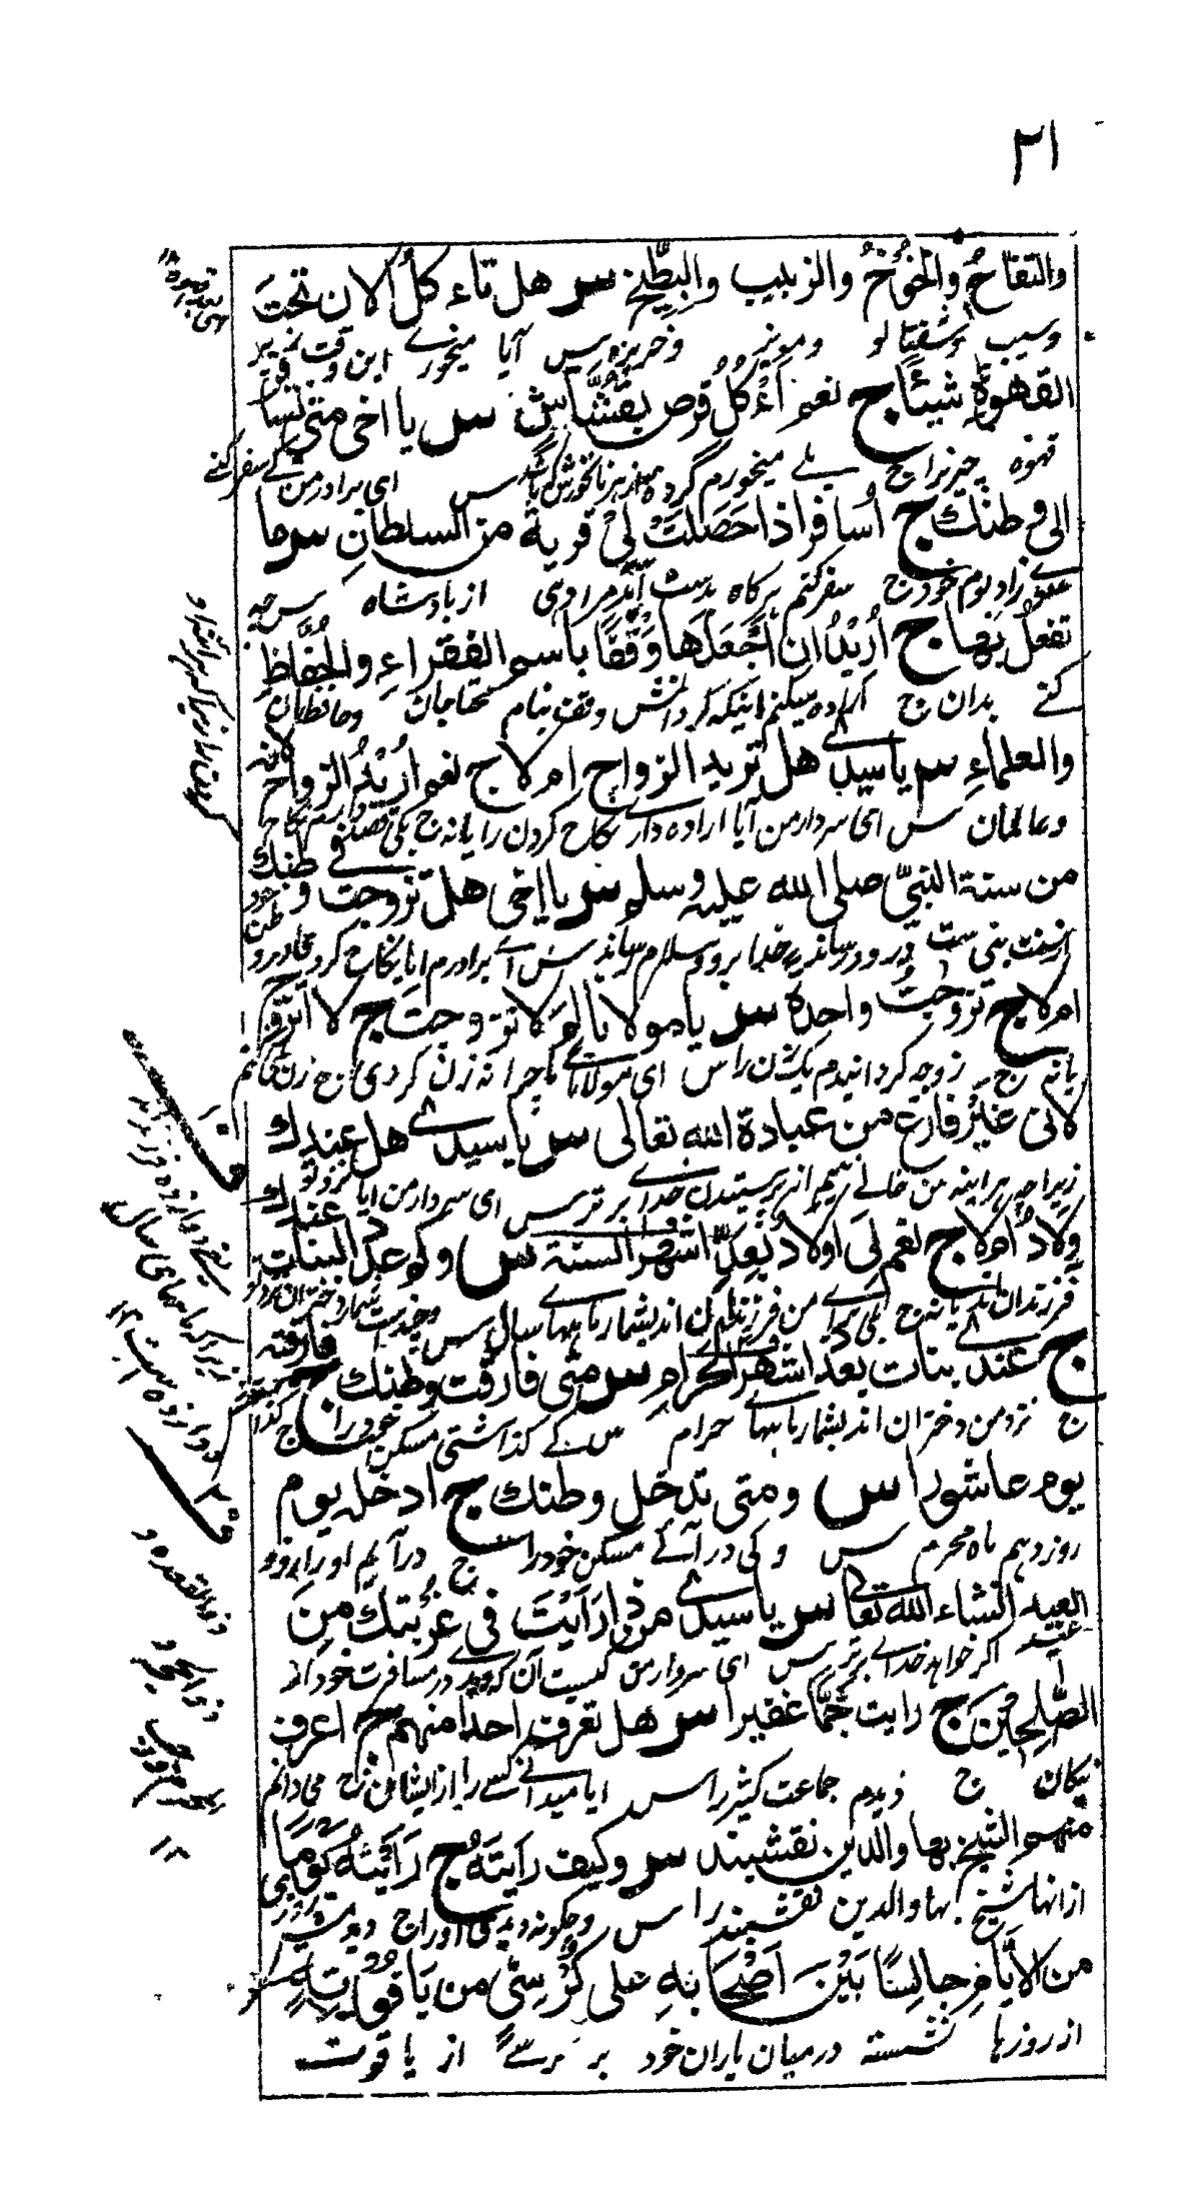 ٢١
والتفاحُ والخُوخُ والزبيب والبِطّيخ س هل تاءكلُ الان تحتَ
وسيب وشفتالو ومويز وخربزه س آيا میخوری این وقت زیر
القهوة شيئًا ج نعم اٰءْكُلُ قرص بقشُماش س يا اخى متى تسا
قهوه چیزیرا ج بلے میخورم گرده س ای برادر من کے سفر کنے
فر الى وطنك ج اُسافر اذا حَصَلَتْ لِى قرية من السلطانِ س ما
زاد بوم خود ج سفر کنم هرگاه بدست آید مرا دهی از بادشاه س چه
تفعلُ بها ج اُرِيْدُ ان اَجْعَلَهَا وَقْفًا باسم الفقراءِ والحُفَّاظِ
کنے بدان ج اراده میکنم اینکه گردانمش وقف بنام محتاجان وحافظان
والعلماءِ س يا سيدى هل تريد الزواج ام لا ج نعم اُرِيْدُ الزواج لانه
وعالمان س ای سردار من آیا اراده داری نکاح کردن را یا نه ج
من سنة النبىّ صلى الله عليه وسلم س يا اخى هل تزوجت فى وطنك
از سنت نبی ست درود رساند خدا برو وسلام رساند س اے برادرم ایا نکاح کرده
ام لا ج تزوجتُ واحدة س يا مولانا لِمَ لا تزوجت ج لا اتزوّج
یا نه ج زوجه گردانیدم یک زن را س ای مولانا چرا نه زن کردی ج زن نمی کنم
لانى غيرُ فارغ من عبادة الله تعالى س يا سيدى هل عندك
زیراچه هراینه من خالے نیم از پرستیدن خدای برتر س ای سردار من ایا نزد تو
ولادٌ ام لا ج نعم لى اولادٌ بِعدّ اشهر السنة س وكم عدد البنات عندك
فرزندان اند یا نه ج بلی برای من فرزندان اند بشمار ماههای سال س وچند ست شمار دختران نزد تو
ج عندى بنات بعد اشهر الحرام س متى فارقت وطنك ج فارقته
ج نزد من دختران اند بشمار ماههای حرام س کے گذاشتی مسکن خود را ج
يوم عاشورا س ومتى تدخل وطنك ج ادخله يوم
روز دهم ماه محرم س و کی در آئے مسکن خود را ج در آیم او را روز
العيد انشاء الله تعالى س يا سيدى من ذا رَاَيْتَ فى غُرْبتك مِنَ
عید اگر خواهد خدای برتر س ای سردار من کیست آن که دیدی در مسافرت خود از
الصّٰلِحِيْنَ ج رايت جَمًّا غفيرا س هل تعرف احدا منهم ج اعرف
نیکان ج دیدم جماعت کثیر را س ایا میدانے کسے را از ایشان ج می دانم
منهم الشيخ بهاوالدين نقشبند س وكيف رايته ج رَاَيْتُهُ يَوْمًا
ازانها شیخ بهاوالدین نقشبند را س وچگونه دیدی او را ج دیدمش روزی
من الاَيَّامِ جالِسًا بَيْنَ اَصْحَابِهِ على كُرْسِىّ من يَاقُوْتٍ
از روزها نشسته درمیان یاران خود بر کرسے از یاقوت
زیراکه ماههای سال
دوازده است ۱۲
ذوالقعده و
ذوالحجه و
محرم و رجب
۱۲